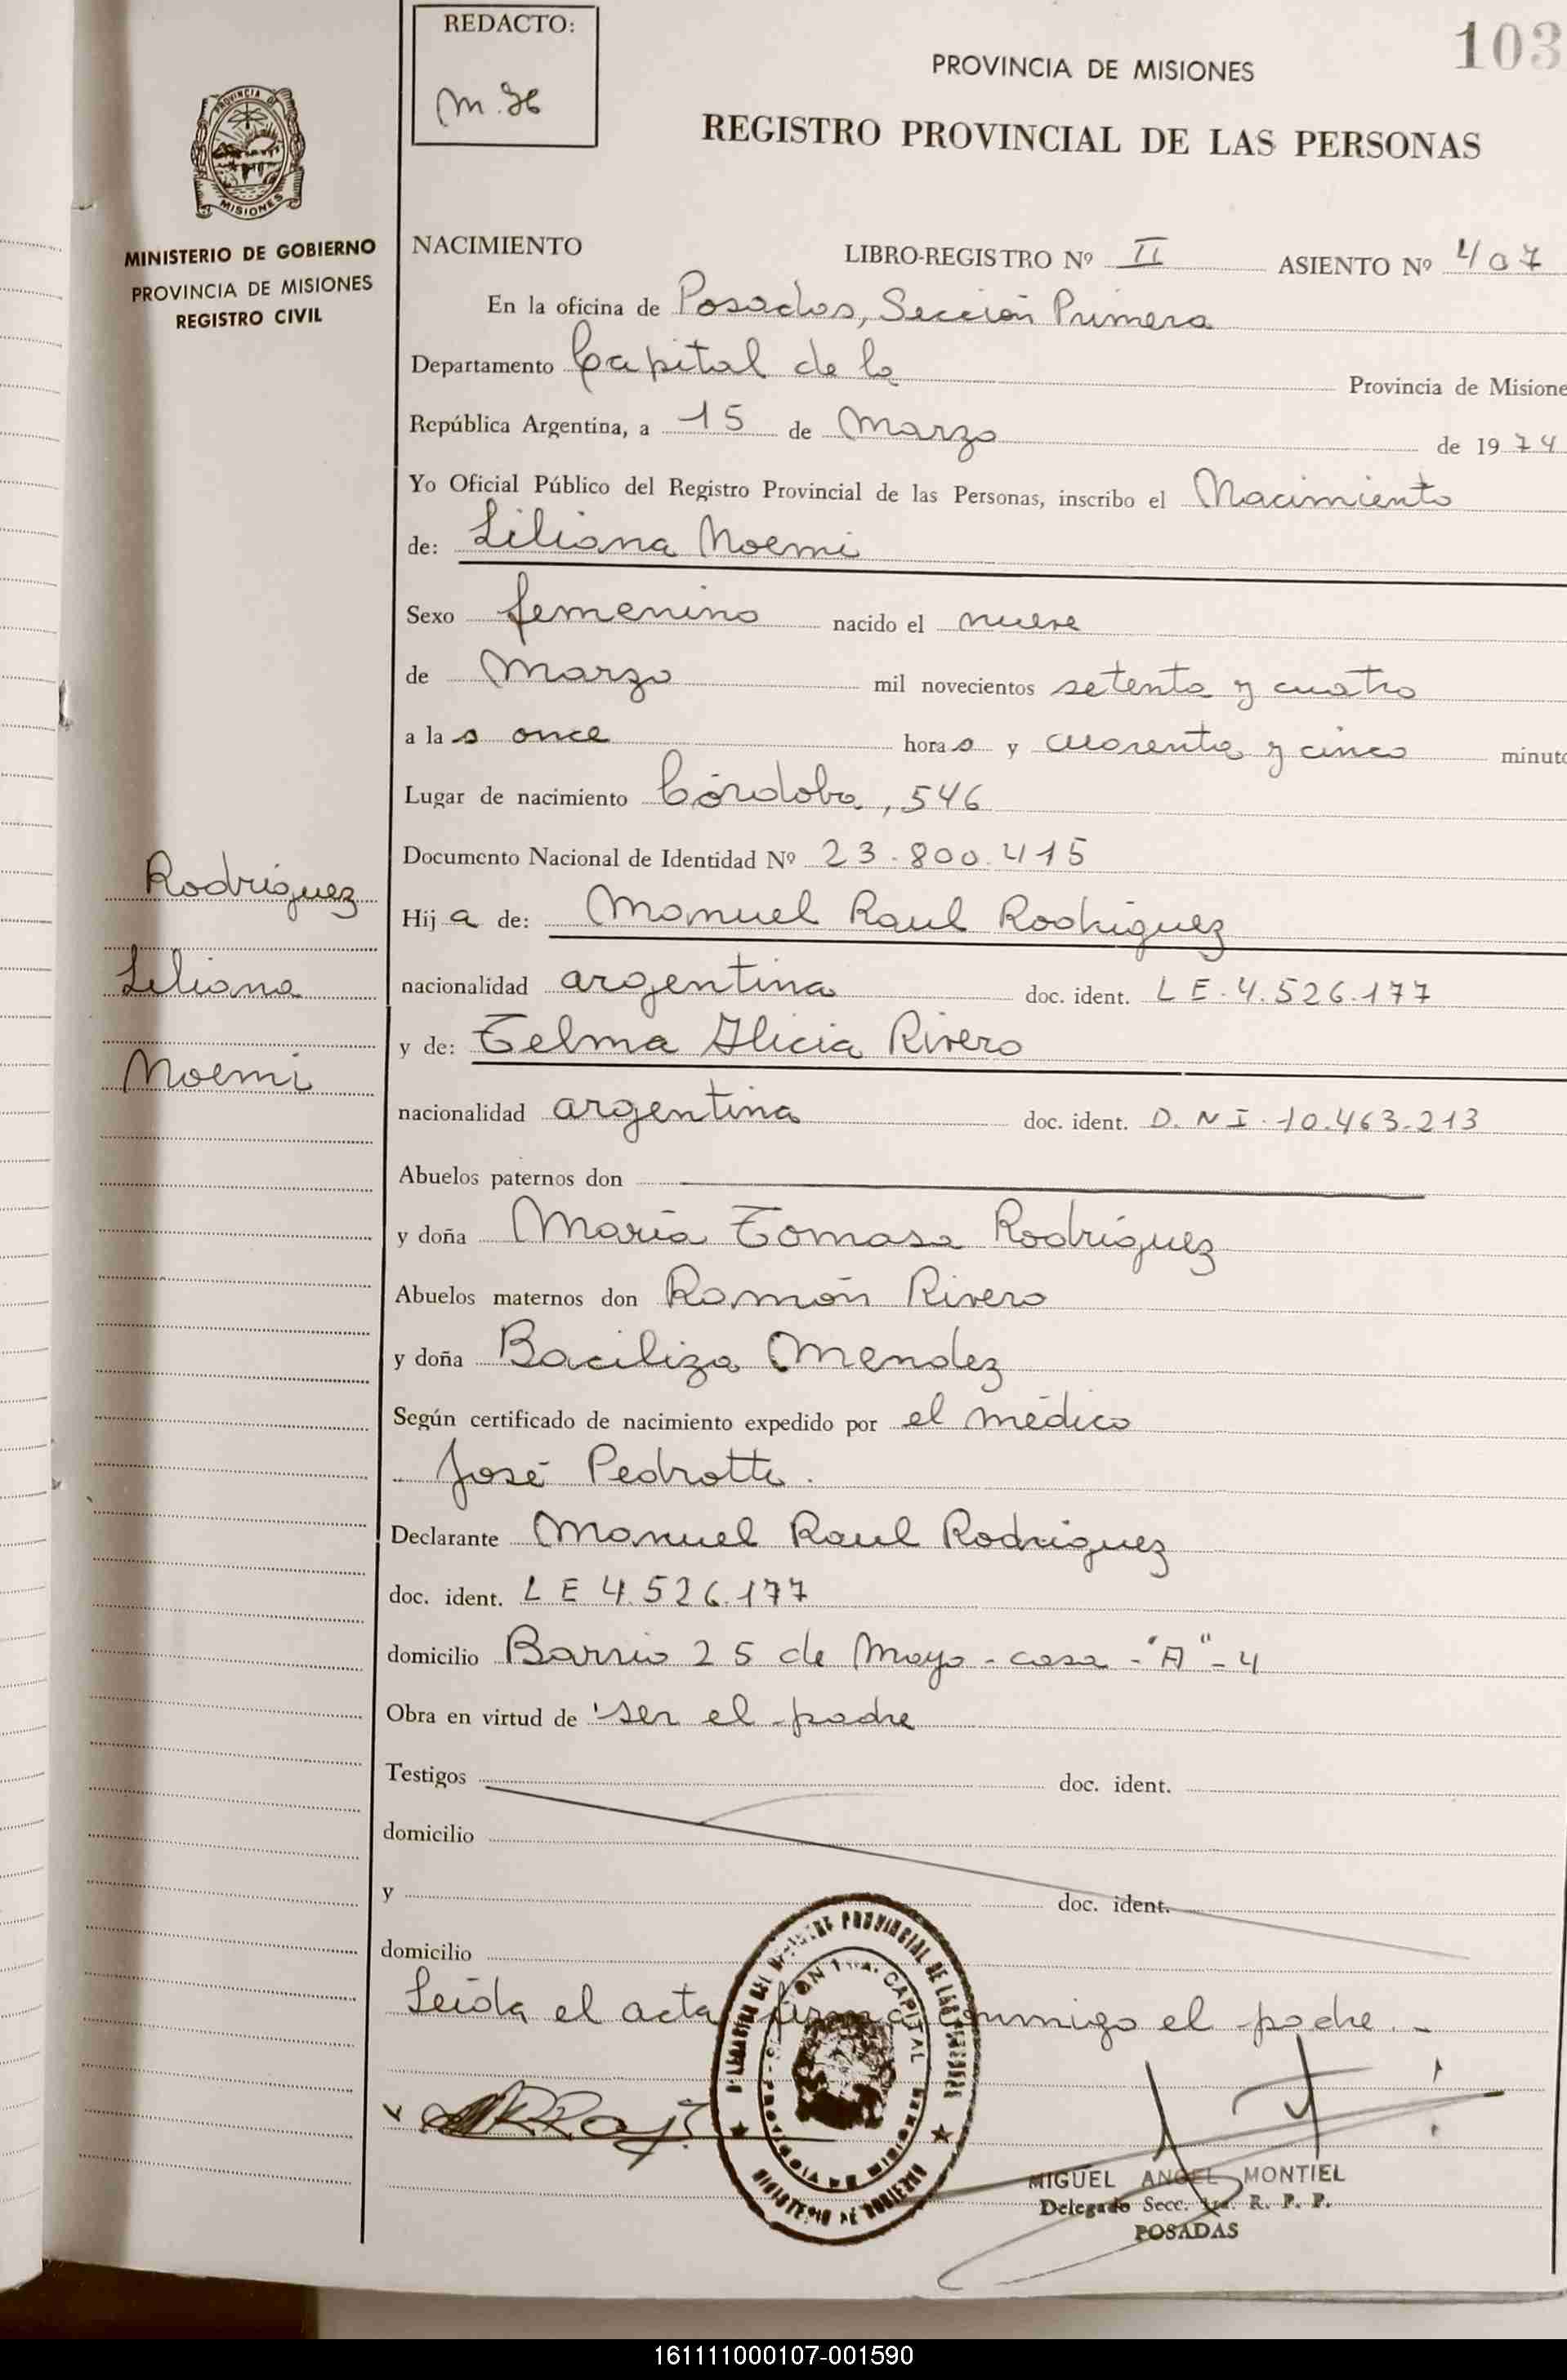 REDACTO:
M. H
103
PROVINCIA DE MISIONES
REGISTRO PROVINCIAL DE LAS PERSONAS
PROVINCIA DE
MISIONES
MINISTERIO DE GOBIERNO
PROVINCIA DE MISIONES
REGISTRO CIVIL
NACIMIENTO LIBRO-REGISTRO Nº II ASIENTO Nº 407
En la oficina de Posadas, Sección Primera
Departamento Capital de la Provincia de Misione
República Argentina, a 15 de Marzo de 1974
Yo Oficial Público del Registro Provincial de las Personas, inscribo el Nacimiento
de: Liliana Noemi
Sexo femenino nacido el nueve
de Marzo mil novecientos setenta y cuatro
a las once horas y cuarenta y cinco minuto
Lugar de nacimiento Córdoba, 546
Documento Nacional de Identidad Nº 23.800.415
Rodriguez
Liliana
Noemi
Hija de: Manuel Raul Rodriguez
nacionalidad argentina doc. ident. L E. 4.526.177
y de: Telma Alicia Rivero
nacionalidad argentina doc. ident. D. N I. 10.463.213
Abuelos paternos don
y doña María Tomasa Rodríguez
Abuelos maternos don Ramón Rivero
y doña Baciliza Mendez
Según certificado de nacimiento expedido por el médico
José Pedrotti.
Declarante Manuel Raul Rodriguez
doc. ident. L E 4.526.177
domicilio Barrio 25 de Mayo - casa - "A" - 4
Obra en virtud de ser el padre
Testigos doc. ident.
domicilio
y doc. ident.
domicilio
Leída el acta, firma conmigo el padre. -
PROVINCIAL DE LAS PERSONAS
CAPITAL
PROVINCIA DE MISIONES
MINISTERIO DE GOBIERNO
MIGUEL ANGEL MONTIEL
Delegado Secc. 1ra. R. P. P.
POSADAS
161111000107-001590